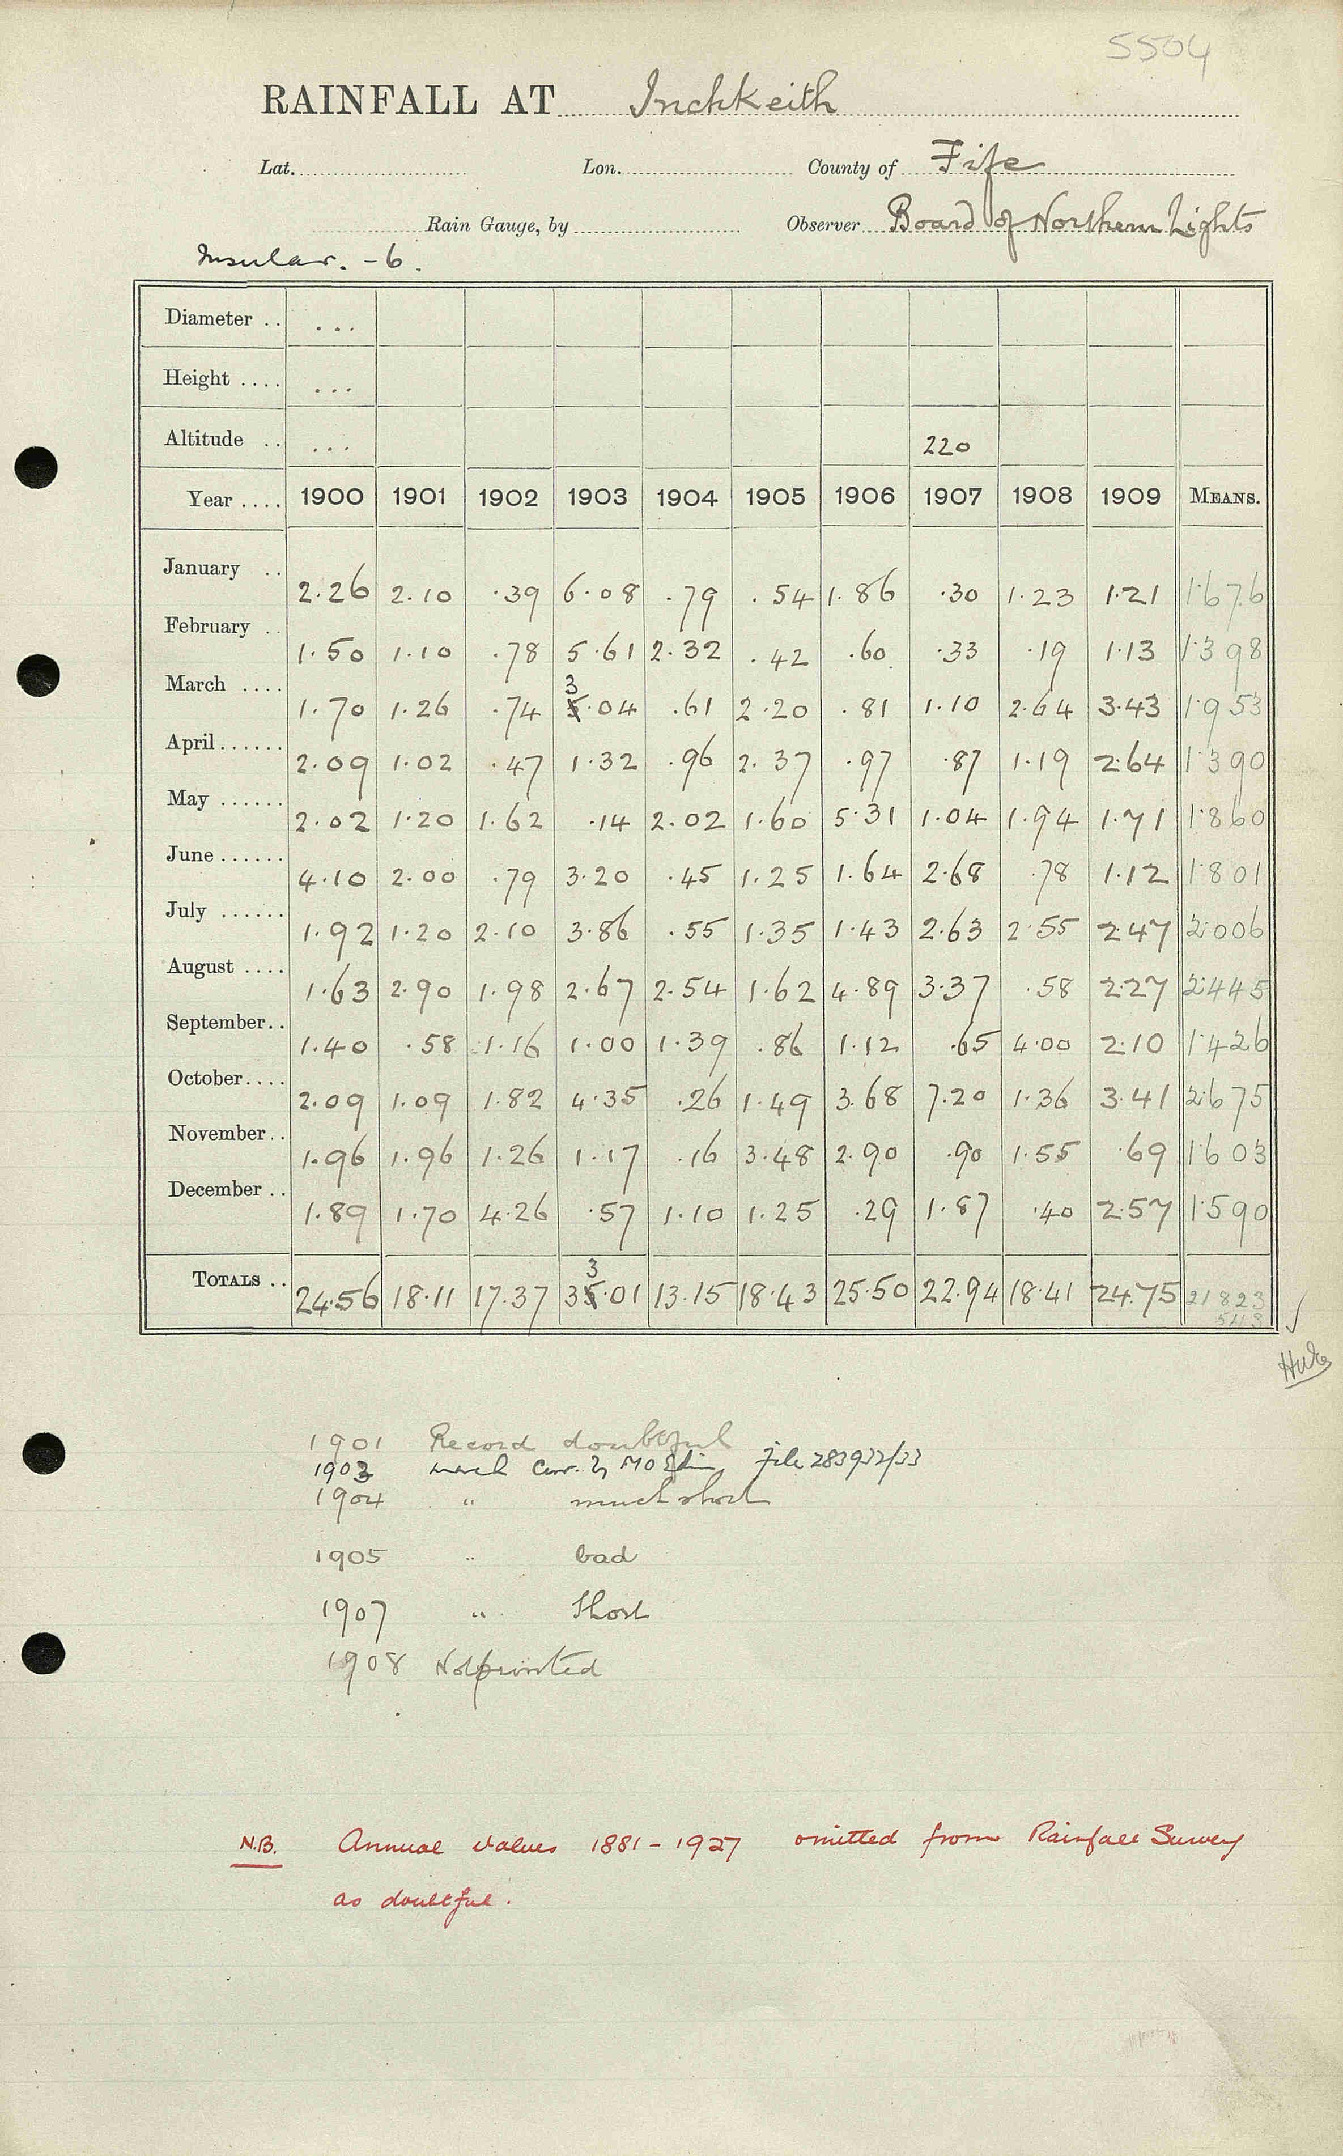 5504
RAINFALL AT Inchkeith
Lat. Lon. County of Fife
Rain Gauge, by Observer Board of Northern Lights
Insular. - 6.
Diameter .. ...
Height .... ...
Altitude .. ... 220
Year .... 1900 1901 1902 1903 1904 1905 1906 1907 1908 1909 MEANS.
January .. 2.26 2.10 .39 6.08 .79 .54 1.86 .30 1.23 1.21 1.676
February .. 1.50 1.10 .78 5.61 2.32 .42 .60 .33 .19 1.13 1.398
3
March .... 1.70 1.26 .74 5.04 .61 2.20 .81 1.10 2.64 3.43 1.953
April...... 2.09 1.02 .47 1.32 .96 2.37 .97 .87 1.19 2.64 1.390
May ...... 2.02 1.20 1.62 .14 2.02 1.60 5.31 1.04 1.94 1.71 1.860
June...... 4.10 2.00 .79 3.20 .45 1.25 1.64 2.68 .78 1.12 1.801
July ...... 1.92 1.20 2.10 3.86 .55 1.35 1.43 2.63 2.55 2.47 2.006
August .... 1.63 2.90 1.98 2.67 2.54 1.62 4.89 3.37 .58 2.27 2.445
September.. 1.40 .58 1.16 1.00 1.39 .86 1.12 .65 4.00 2.10 1.426
October.... 2.09 1.09 1.82 4.35 .26 1.49 3.68 7.20 1.36 3.41 2.675
November.. 1.96 1.96 1.26 1.17 .16 3.48 2.90 .90 1.55 .69 1.603
December .. 1.89 1.70 4.26 .57 1.10 1.25 .29 1.87 .40 2.57 1.590
3
TOTALS .. 24.56 18.11 17.37 35.01 13.15 18.43 25.50 22.94 18.41 24.75 21823
1901 Record doubtful
1903 March Corr. by MO Edin File 283932/33
1904 " much short
1905 " bad
1907 " Short
1908 Not printed
N.B. Annual values 1881 - 1927 omitted from Rainfall Survey
as doubtful.